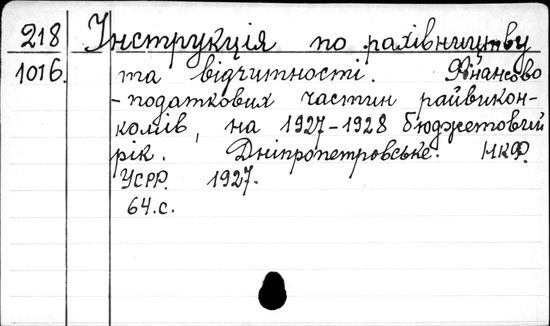 218 Інструкція по рахівництву
1016. та відчитності. Фінансово
-податкових частин райвикон-
комів, на 1927-1928 бюджетовий
рік. Дніпропетровське. НКФ.
УСРР. 1927.
64.с.